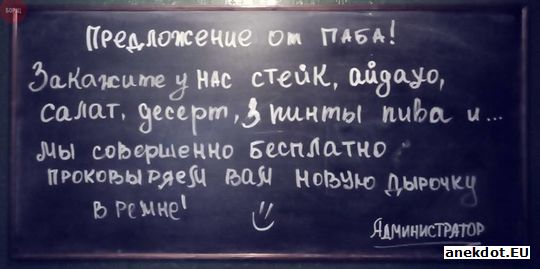 БОРЩ
Предложение от ПАБА!
Закажите у нас стейк, айдахо,
салат, десерт, 3 пинты пива и...
Мы совершенно бесплатно
проковыряем вам новую дырочку
в ремне!
Администратор
anekdot.EU